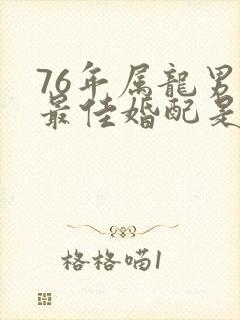 76年属龍男
最佳婚配是
格格喵1